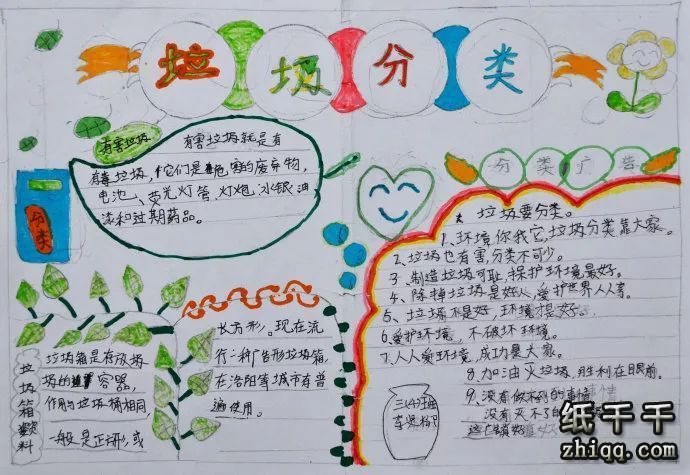 垃圾分类
有害垃圾
有害垃圾就是有
有毒垃圾,它们是危害的废弃物,
电池、荧光灯管、灯炮、水银、油
漆和过期药品。
分类
分类广告
垃圾要分类。
1、环境你我它,垃圾分类靠大家。
2、垃圾也有害,分类不可少。
3、制造垃圾可耻,保护环境最好。
4、除掉垃圾是好人,爱护世界人人享。
5、垃圾不是好,环境才是好。
6、爱护环境,不破坏环境。
7、人人爱环境,成功最大家。
8、加油灭垃圾,胜利在眼前。
9、没有做不到的事情
没有灭不了的
垃圾箱是存放垃
圾的容器,
作用与垃圾桶相同,
一般是正方形,或
长方形。现在流
行一种广告形垃圾箱,
在洛阳等城市有普
遍使用。
垃圾箱资料
三(4)班
纸干干
zhiqq.com